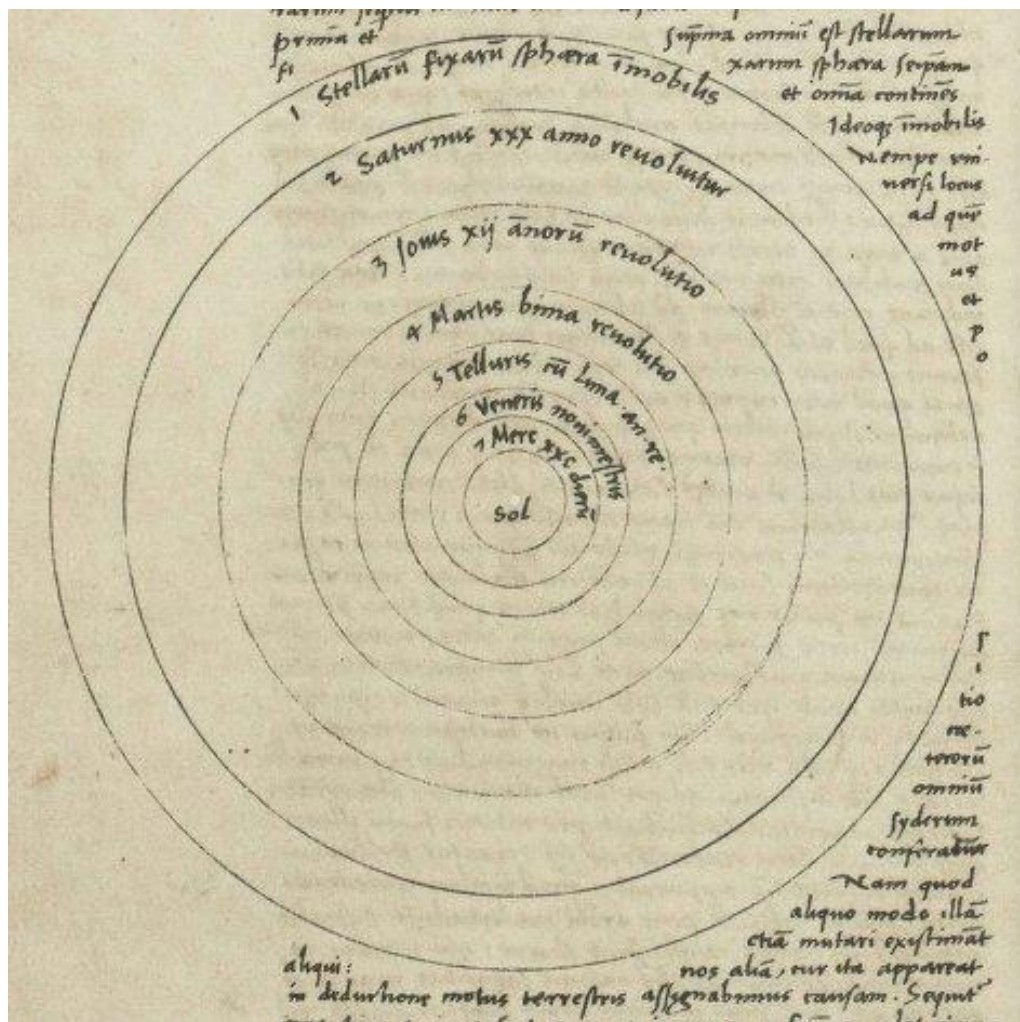 prima et
Suprema omniū est stellarum
fi
xarum sphæra seipsam
et omnia continēs
Ideoqꝫ īmobilis
Nempe vni-
uersi locus
ad quē
mot
us
et
p
o
1 Stellarū fixarū sphæra īmobilis
2 Saturnus xxx anno reuoluitur
3 Iouis xij ānorū reuolutio
4 Martis bima reuolutio
5 Telluris cū Luna . an . re .
6 Veneris nonimestris
7 Merc xxc dierū
Sol
ſ
i
tio
cæ-
terorū
omniū
syderum
conferatur
Nam quod
aliquo modo illā
etiā mutari existimāt
aliqui :
nos aliā, cur ita appareat
in deductione motus terrestris assignabimus causam . Sequit